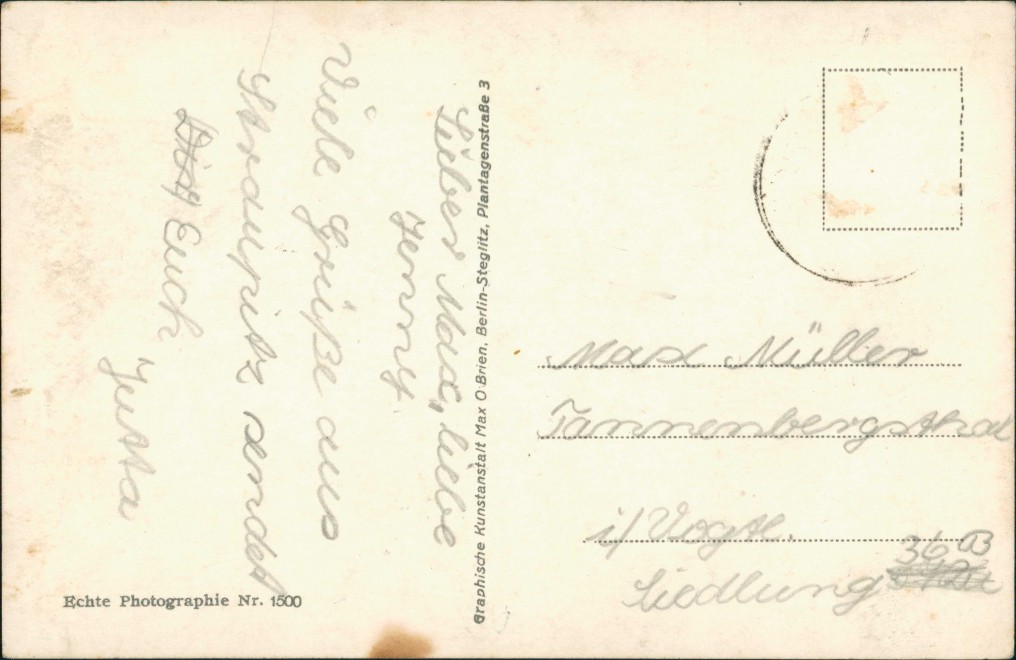 Lieber Max, liebe
Jenny
Viele Grüße aus
Straupitz sendet
Euch
Jutta
Echte Photographie Nr. 1500
Graphische Kunstanstalt Max O'Brien, Berlin-Steglitz, Plantagenstraße 3
Max Müller
Tannenbergsthal
i/ Vogtl.
Siedlung 36 B